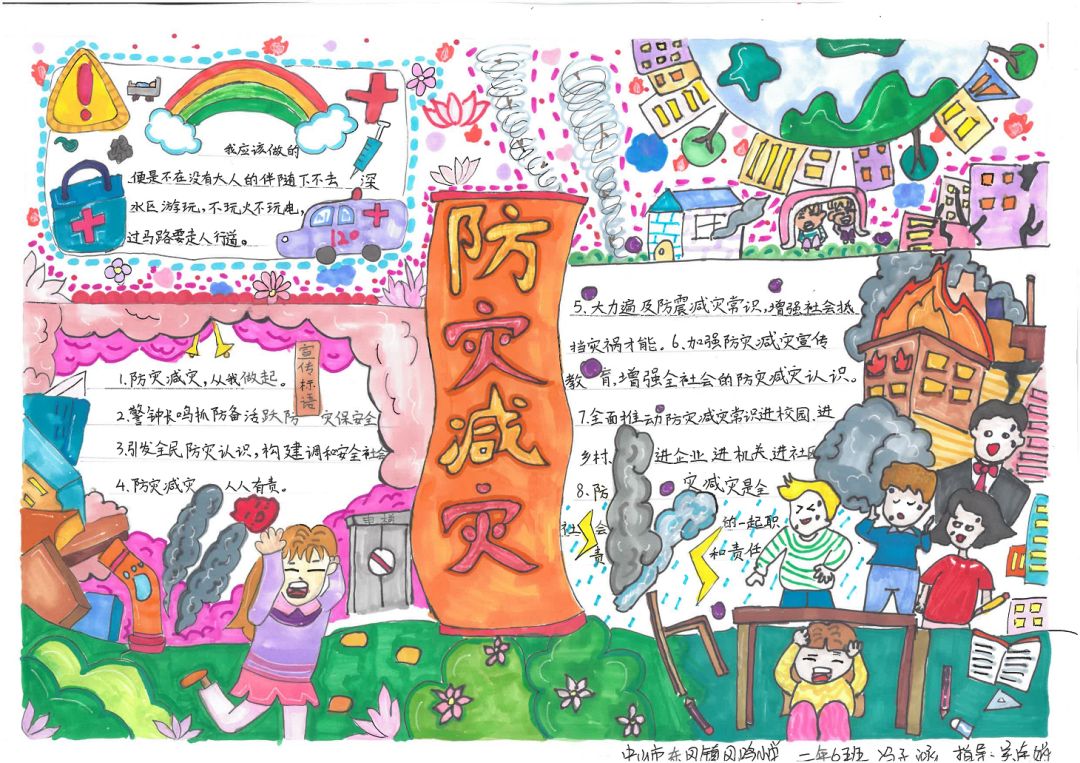 我应该做的
便是不在没有大人的伴随下不去 深
水区游玩，不玩火不玩电，
过马路要走人行道。
120
防灾减灾
宣传标语
1.防灾减灾，从我做起。
2.警钟长鸣抓防备活跃防 灾保安全
3.引发全民防灾认识，构建调和安全社会
4.防灾减灾 人人有责。
电梯
5、大力遍及防震减灾常识，增强社会抵
挡灾祸才能。6、加强防灾减灾宣传
教育，增强全社会的防灾减灾认识。
7.全面推动防灾减灾常识进校园、进
乡村、进企业、进机关、进社区
8、防 灾减灾是全
社会 的一起职
责 和责任
中山市东凤镇 小学 二年6班 冯子 指导：